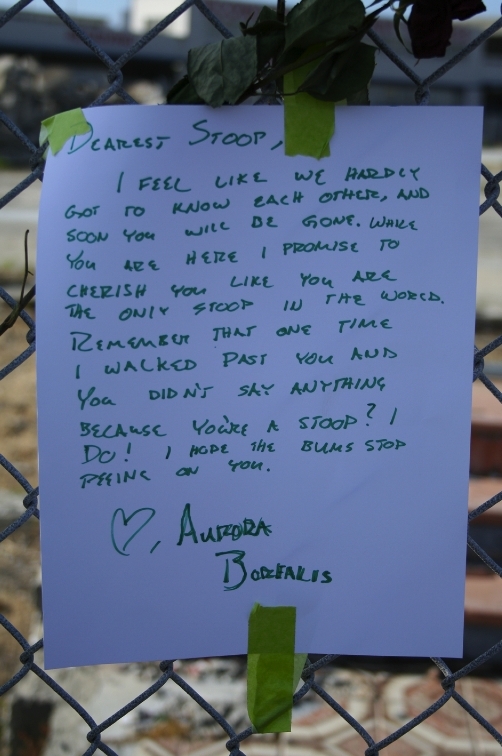 DEAREST STOOP,
I FEEL LIKE WE HARDLY
GOT TO KNOW EACH OTHER, AND
SOON YOU WILL BE GONE. WHILE
YOU ARE HERE I PROMISE TO
CHERISH YOU LIKE YOU ARE
THE ONLY STOOP IN THE WORLD.
REMEMBER THAT ONE TIME
I WALKED PAST YOU AND
YOU DIDN'T SAY ANYTHING
BECAUSE YOU'RE A STOOP? I
DO! I HOPE THE BUMS STOP
PEEING ON YOU.
♡, AURORA
BOREALIS